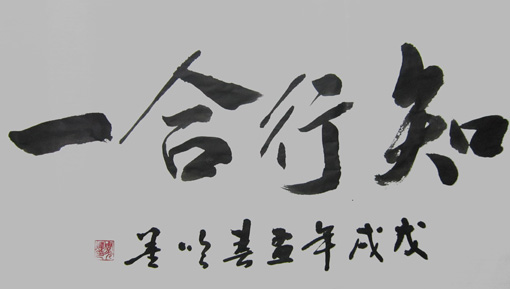 知行合一
戊戌年孟春